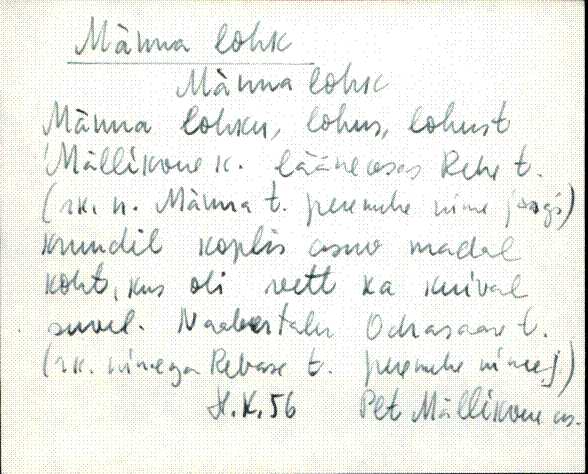 Männa lohk
Männa lohk
Männa lohku, lohus, lohust
Mällikvere k. lääneosas Rehe t.
(rk. n. Männa t. peremehe nime järgi)
krundil koplis asuv madal
koht, kus oli vett ka kuival
suvel. Naabertalu Odrasaare t.
(rk. nimega Rebase t. peremehe nime j.)
H.K.56 Plt Mällikvere as.